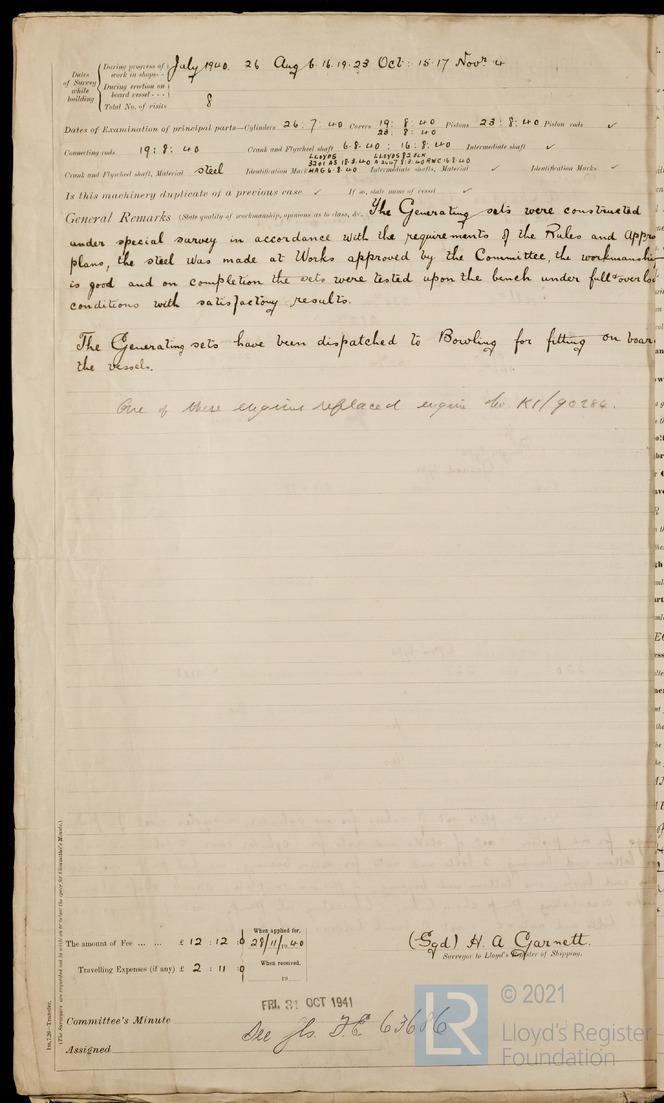 Dates of Survey while building
During progress of work in shops - - July 1940. 26 Aug 6. 16. 19. 23 Oct: 15. 17 Novr. 4
During erection on board vessel - - -
Total No. of visits 8
Dates of Examination of principal parts—Cylinders 26: 7: 40 Covers 19: 8: 40 Pistons 23: 8: 40 Piston rods ✓
23: 8: 40
Connecting rods 19: 8: 40 Crank and Flywheel shaft 6.8.40 : 16: 8: 40 Intermediate shaft ✓
LLOYDS LLOYDS
Crank and Flywheel shaft, Material steel Identification Mark HAG 6.8.40 Intermediate shafts, Material ✓ Identification Marks ✓
Is this machinery duplicate of a previous case ✓ If so, state name of vessel ✓
General Remarks (State quality of workmanship, opinions as to class, &c. The Generating sets were constructed
under special survey in accordance with the requirements of the Rules and Appro
plans, the steel was made at Works approved by the Committee, the workmanship
is good and on completion the sets were tested upon the bench under full & over loa
conditions with satisfactory results.
The Generating sets have been dispatched to Bowling for fitting on boar
the vessels.
One of these engines replaced engine No. K1/90284.
The amount of Fee ... ... £ 12 : 12 : 0 When applied for, 28/11/1940
Travelling Expenses (if any) £ 2 : 11 : 9 When received, 19
(Sgd) H. A Garnett.
Surveyor to Lloyd's Register of Shipping.
FRI. 31 OCT 1941
Committee's Minute
See Gls. F.E. 63686
Assigned
1m,7.20—Transfer.
(The Surveyors are requested not to write on or below the space for Committee's Minute.)
LR
© 2021
Lloyd's Register
Foundation